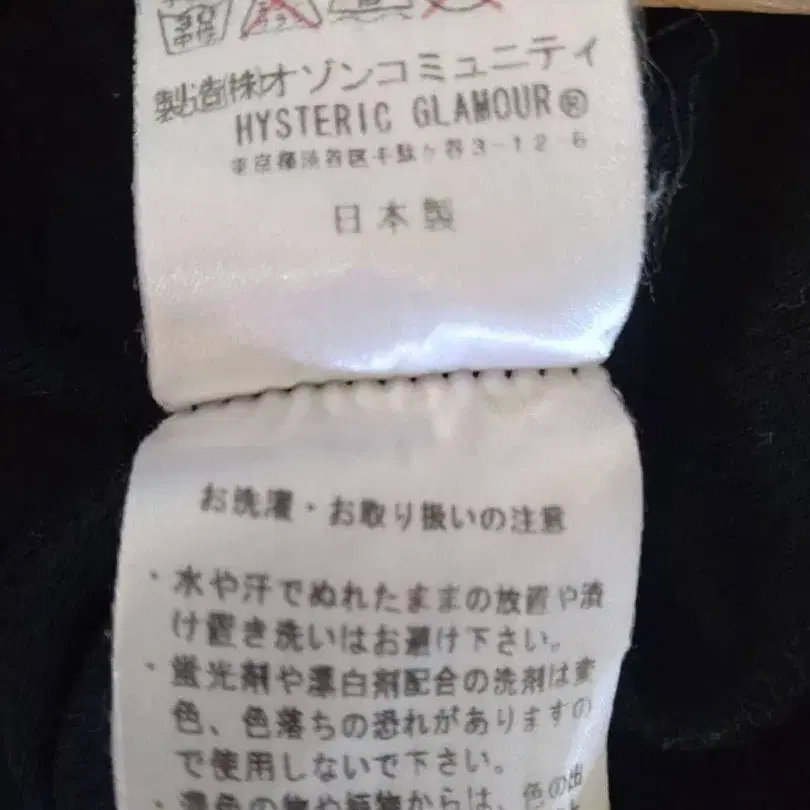 30
中性
製造(株)オゾンコミュニティ
HYSTERIC GLAMOUR®
東京都渋谷区千駄ヶ谷3-12-6
日本製
お洗濯・お取り扱いの注意
・水や汗でぬれたままの放置や漬
け置き洗いはお避け下さい。
・蛍光剤や漂白剤配合の洗剤は変
色、色落ちの恐れがありますの
で使用しないで下さい。
・濃色の物や柄物からは、色の出